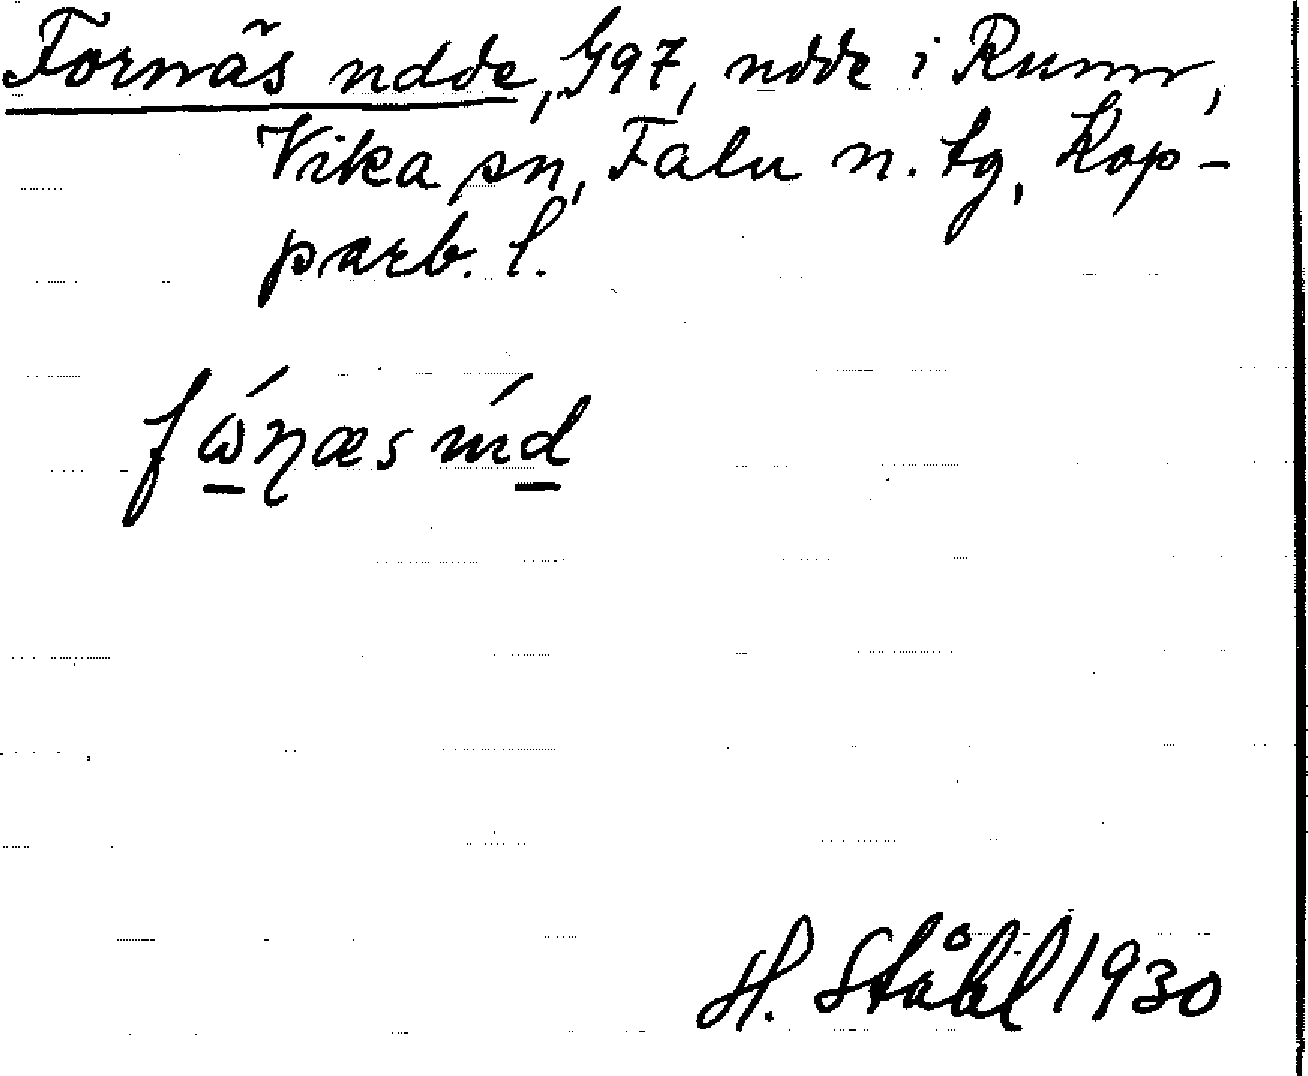 Fornäs ndde, G97, ndde i Runn,
Vika sn, Falu n. tg, Kop-
parb. l.
fώɳæs níd
H. Ståhl 1930